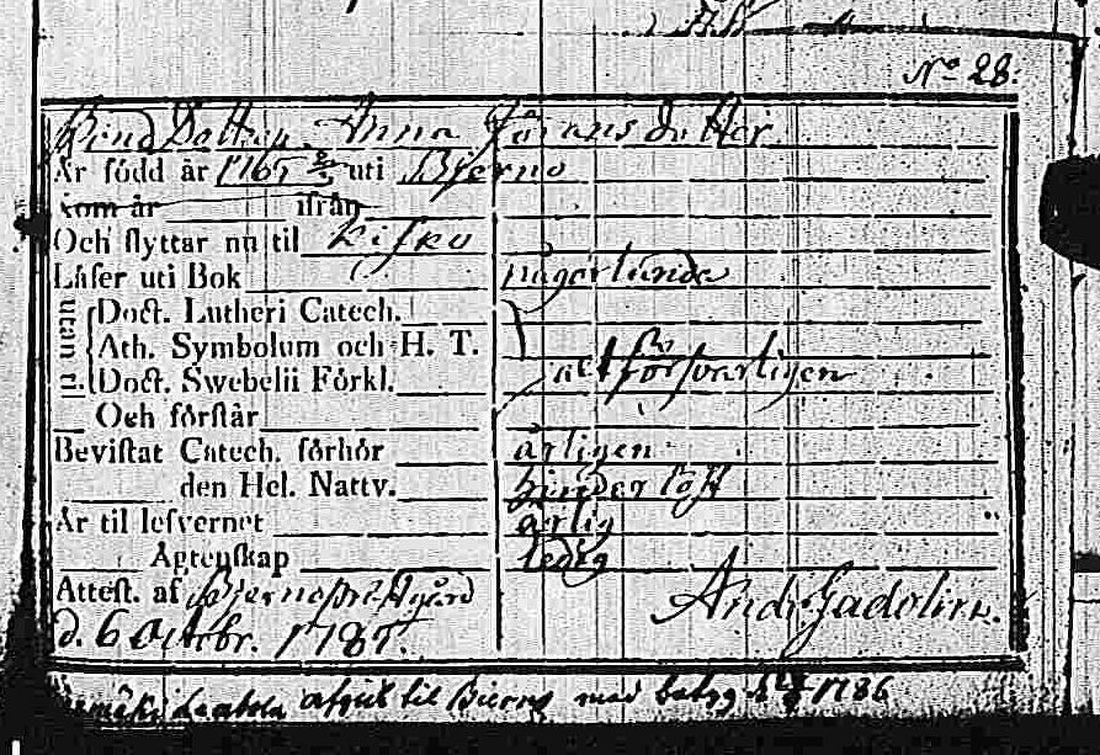 No 28.
Bond Dottren Anna Göransdotter
Är född år 1765 uti Bjerno
som år ifrån
Och flyttar nu til Kisko
Läser uti Bok någorlunda
Doct. Lutheri Catech.
Ath. Symbolum och H. T.
alt försvarligen
Doct. Swebelii Förkl.
Och förstår
Bevistat Catech. förhör årligen
den Hel. Nattv. hinderlöst
Är til lefvernet ärlig
Ägtenskap ledig
Attest. af Bjerno Prestgård And. Gadolin.
d. 6 Octobr. 1785.
afgick til Bierno med betyg 1786